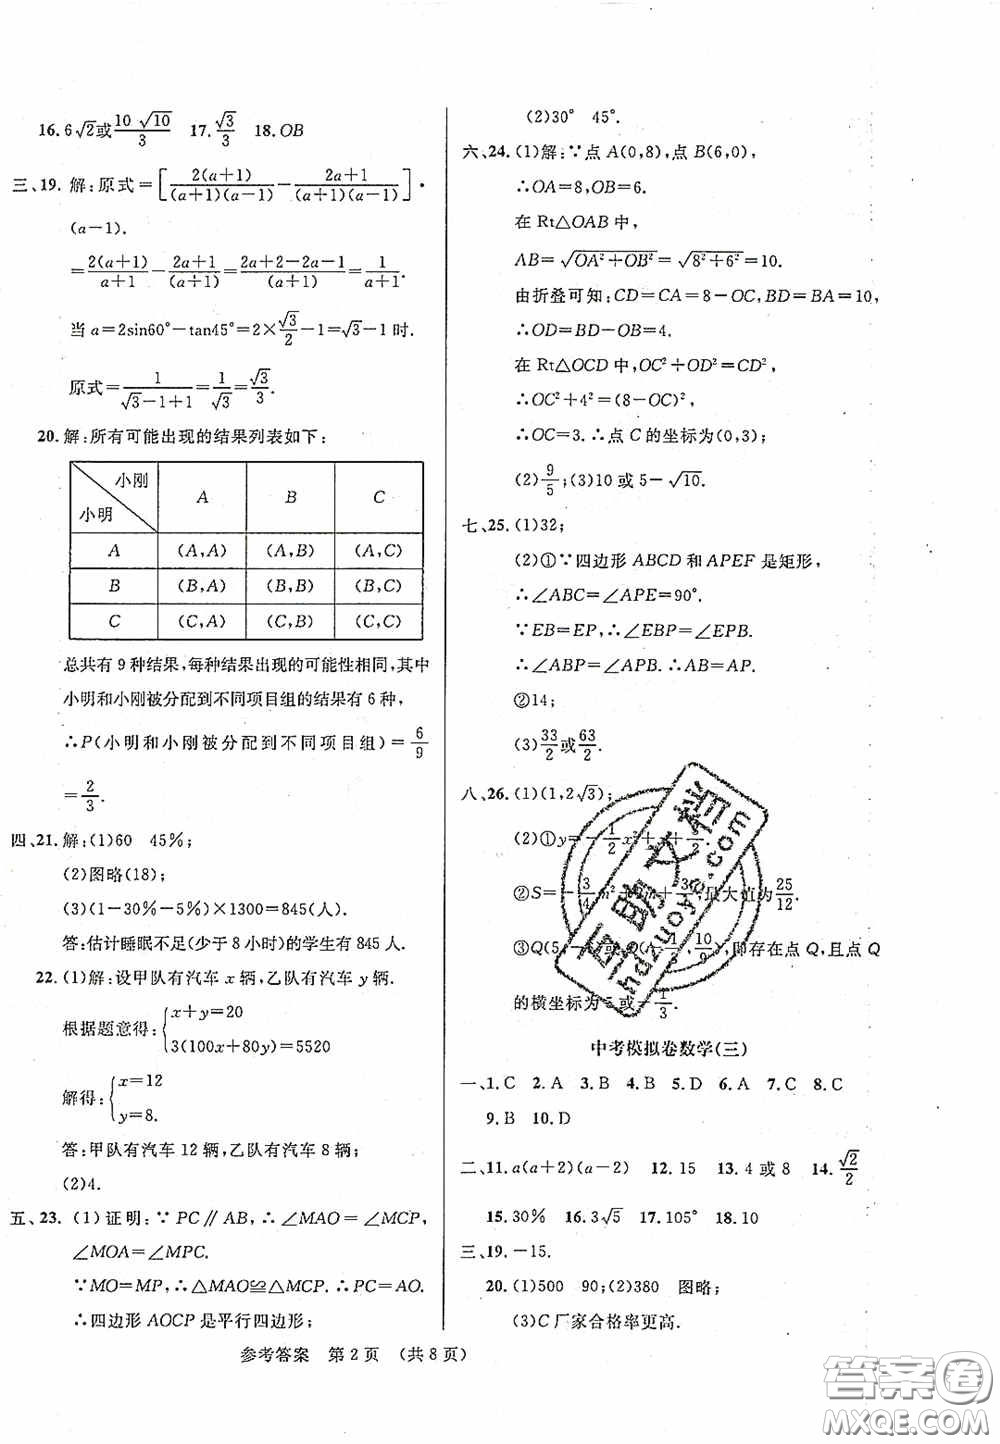 16. 6√2或10√10/3  17. √3/3  18. OB
三、19. 解:原式=[2(a+1)/(a+1)(a−1) − 2a+1/(a+1)(a−1)]·
(a−1).
=2(a+1)/a+1 − 2a+1/(a+1) = 2a+2−2a−1/(a+1) = 1/a+1.
当a=2sin60°−tan45°=2×√3/2−1=√3−1时.
原式=1/√3−1+1=1/√3=√3/3.
20. 解:所有可能出现的结果列表如下:
小刚 小明 A B C
A (A,A) (A,B) (A,C)
B (B,A) (B,B) (B,C)
C (C,A) (C,B) (C,C)
总共有9种结果,每种结果出现的可能性相同,其中
小明和小刚被分配到不同项目组的结果有6种,
∴P(小明和小刚被分配到不同项目组)=6/9
=2/3.
四、21. 解:(1)60 45%;
(2)图略(18);
(3)(1−30%−5%)×1300=845(人).
答:估计睡眠不足(少于8小时)的学生有845人.
22. (1)解:设甲队有汽车x辆,乙队有汽车y辆.
根据题意得:{x+y=20
3(100x+80y)=5520
解得:{x=12
y=8.
答:甲队有汽车12辆,乙队有汽车8辆.
(2)4.
五、23. (1)证明:∵PC∥AB,∴∠MAO=∠MCP,
∠MOA=∠MPC.
∵MO=MP,∴△MAO≌△MCP.∴PC=AO.
∴四边形AOCP是平行四边形;
(2)30° 45°.
六、24. (1)解:∵点A(0,8),点B(6,0),
∴OA=8,OB=6.
在Rt△OAB中,
AB=√OA²+OB²=√8²+6²=10.
由折叠可知:CD=CA=8−OC,BD=BA=10,
∴OD=BD−OB=4.
在Rt△OCD中,OC²+OD²=CD²,
∴OC²+4²=(8−OC)²,
∴OC=3.∴点C的坐标为(0,3);
(2)9/5;(3)10或5−√10.
七、25. (1)32;
(2)①∵四边形ABCD和APEF是矩形,
∴∠ABC=∠APE=90°.
∵EB=EP,∴∠EBP=∠EPB.
∴∠ABP=∠APB.∴AB=AP.
②14;
(3)33/2或63/2.
八、26. (1)(1,2√3);
(2)①y=−1/2x²+x+
②S=−3/4m²+ 最大值为25/12.
③Q(5, 10/9),即存在点Q,且点Q
的横坐标为5或−1/3.
中考模拟卷数学(三)
一、1. C 2. A 3. B 4. B 5. D 6. A 7. C 8. C
9. B 10. D
二、11. a(a+2)(a−2) 12. 15 13. 4或8 14. √2/2
15. 30% 16. 3√5 17. 105° 18. 10
三、19. −15.
20. (1)500 90;(2)380 图略;
(3)C厂家合格率更高.
参考答案 第2页 (共8页)
答案圈
MXQE.COM